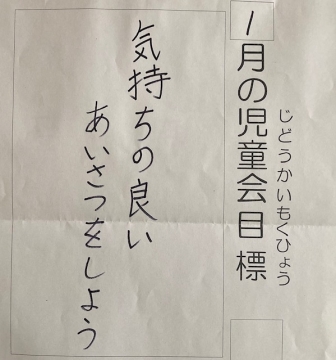 1月の児童会目標
じどうかいもくひょう
気持ちの良い
あいさつをしよう